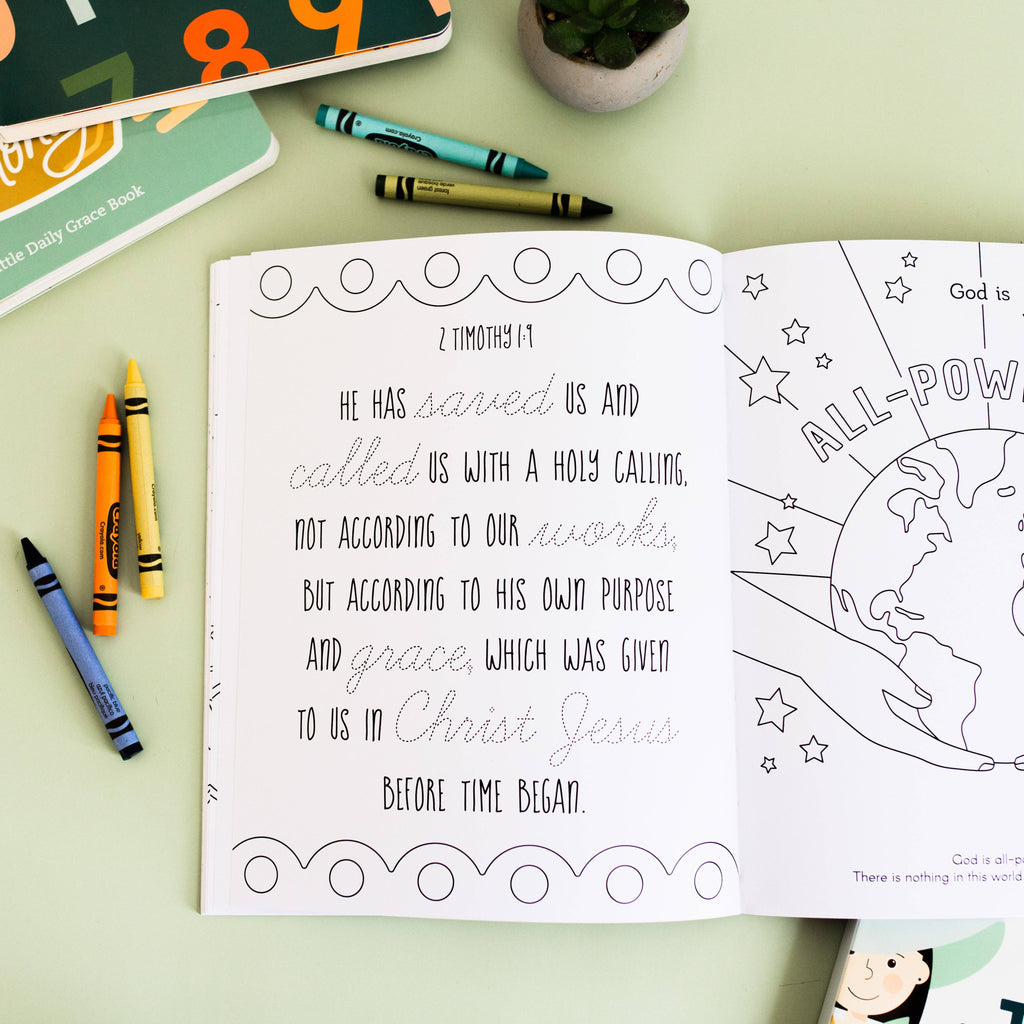 7 8 9
ttle Daily Grace Book
Crayola
Crayola.com
forest green
verde bosque
2 TIMOTHY 1:9
HE HAS saved US AND
called US WITH A HOLY CALLING,
NOT ACCORDING TO OUR works,
BUT ACCORDING TO HIS OWN PURPOSE
AND grace, WHICH WAS GIVEN
TO US IN Christ Jesus
BEFORE TIME BEGAN.
God is
ALL-POW
God is all-po
There is nothing in this world
Crayola
Crayola.com
yellow